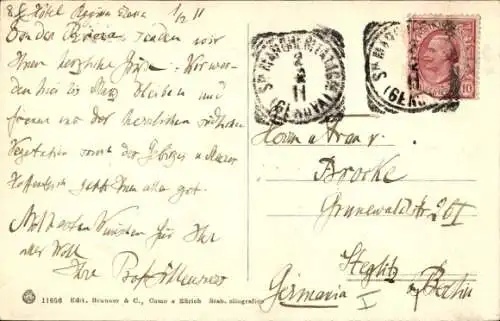 Hôtel 1/2 11
Von der Riviera senden wir
Ihnen herzliche Grüße. Wir wer-
den hier bis März bleiben und
freuen uns der herrlichen südlichen
Vegetation sowie des Gebirges u. Meeres
Hoffentlich geht Ihnen allen gut.
Mit besten Wünschen für Ihr
aller Wohl
Ihr Prof.
Sta MARGHERITA LIGURE
2
2
11
(GENOVA)
Sta MAR
(GENO
10
Herrn u Frau v.
Brocke
Grunewaldstr.
Steglitz
b. Berlin
Germania
11656 Edit. Brunner & C., Como e Zürich Stab. eliografico